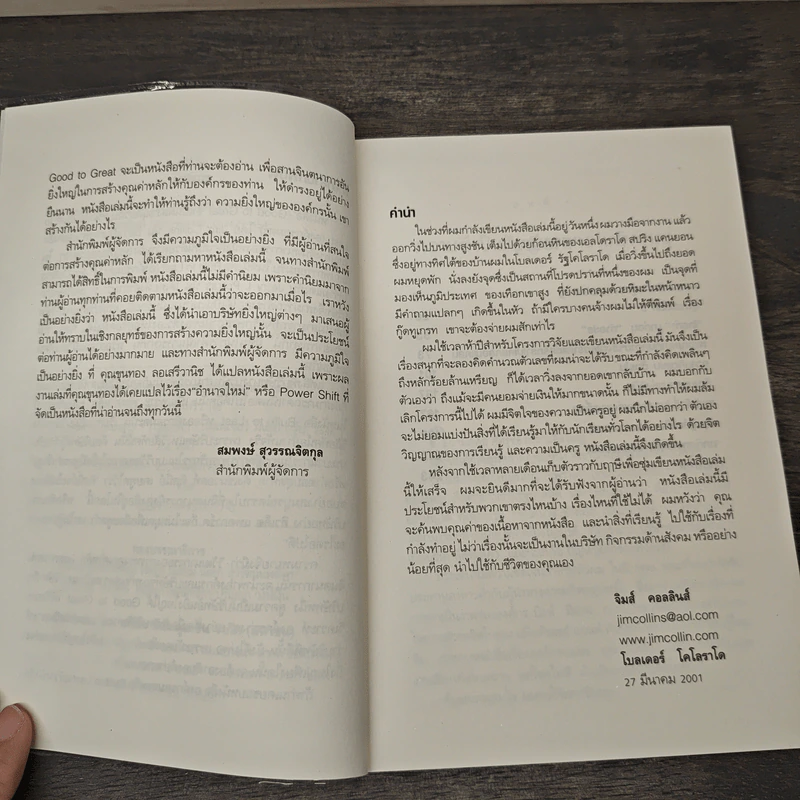 Good to Great จะเป็นหนังสือที่ท่านจะต้องอ่าน เพื่อสานจินตนาการอัน
ยิ่งใหญ่ในการสร้างคุณค่าหลักให้กับองค์กรของท่าน ให้ดำรงอยู่ได้อย่าง
ยืนนาน หนังสือเล่มนี้จะทำให้ท่านรู้ถึงว่า ความยิ่งใหญ่ขององค์กรนั้น เขา
สร้างกันได้อย่างไร
สำนักพิมพ์ผู้จัดการ จึงมีความภูมิใจเป็นอย่างยิ่ง ที่มีผู้อ่านที่สนใจ
ต่อการสร้างคุณค่าหลัก ได้เรียกถามหาหนังสือเล่มนี้ จนทางสำนักพิมพ์
สามารถได้สิทธิ์ในการพิมพ์ หนังสือเล่มนี้ไม่มีคำนิยม เพราะคำนิยมมาจาก
ท่านผู้อ่านทุกท่านที่คอยติดตามหนังสือเล่มนี้ว่าจะออกมาเมื่อไร เราหวัง
เป็นอย่างยิ่งว่า หนังสือเล่มนี้ ซึ่งได้นำเอาบริษัทยิ่งใหญ่ต่างๆ มาเสนอผู้
อ่านให้ทราบในเชิงกลยุทธ์ของการสร้างความยิ่งใหญ่นั้น จะเป็นประโยชน์
ต่อท่านผู้อ่านได้อย่างมากมาย และทางสำนักพิมพ์ผู้จัดการ มีความภูมิใจ
เป็นอย่างยิ่ง ที่ คุณขุนทอง ลอเสรีวานิช ได้แปลหนังสือเล่มนี้ เพราะผล
งานเล่มที่คุณขุนทองได้เคยแปลไว้เรื่อง"อำนาจใหม่" หรือ Power Shift ที่
จัดเป็นหนังสือที่น่าอ่านจนถึงทุกวันนี้
สมพงษ์ สุวรรณจิตกุล
สำนักพิมพ์ผู้จัดการ
คำนำ
ในช่วงที่ผมกำลังเขียนหนังสือเล่มนี้อยู่ วันหนึ่ง ผมวางมือจากงาน แล้ว
ออกวิ่งไปบนทางสูงชัน เต็มไปด้วยก้อนหินของเอลโดราโด สปริง แคนยอน
ซึ่งอยู่ทางทิศใต้ของบ้านผมในโบลเดอร์ รัฐโคโลราโด เมื่อวิ่งขึ้นไปถึงยอด
ผมหยุดพัก นั่งลงยังจุดซึ่งเป็นสถานที่โปรดปรานที่หนึ่งของผม เป็นจุดที่
มองเห็นภูมิประเทศ ของเทือกเขาสูง ที่ยังปกคลุมด้วยหิมะในหน้าหนาว
มีคำถามแปลกๆ เกิดขึ้นในหัว ถ้ามีใครบางคนจ้างผมไม่ให้ตีพิมพ์ เรื่อง
กู๊ดทูเกรท เขาจะต้องจ่ายผมสักเท่าไร
ผมใช้เวลาห้าปีสำหรับโครงการวิจัยและเขียนหนังสือเล่มนี้ มันจึงเป็น
เรื่องสนุกที่จะลองคิดคำนวณตัวเลขที่ผมน่าจะได้รับขณะที่กำลังคิดเพลินๆ
ถึงหลักร้อยล้านเหรียญ ก็ได้เวลาวิ่งลงจากยอดเขากลับบ้าน ผมบอกกับ
ตัวเองว่า ถึงแม้จะมีคนยอมจ่ายเงินให้มากขนาดนั้น ก็ไม่มีทางทำให้ผมล้ม
เลิกโครงการนี้ไปได้ ผมมีจิตใจของความเป็นครูอยู่ ผมนึกไม่ออกว่า ตัวเอง
จะไม่ยอมแบ่งปันสิ่งที่ได้เรียนรู้มาให้กับนักเรียนทั่วโลกได้อย่างไร ด้วยจิต
วิญญาณของการเรียนรู้ และความเป็นครู หนังสือเล่มนี้จึงเกิดขึ้น
หลังจากใช้เวลาหลายเดือนเก็บตัวราวกับฤาษีเพื่อซุ่มเขียนหนังสือเล่ม
นี้ให้เสร็จ ผมจะยินดีมากที่จะได้รับฟังจากผู้อ่านว่า หนังสือเล่มนี้มี
ประโยชน์สำหรับพวกเขาตรงไหนบ้าง เรื่องไหนที่ใช้ไม่ได้ ผมหวังว่า คุณ
จะค้นพบคุณค่าของเนื้อหาจากหนังสือ และนำสิ่งที่เรียนรู้ ไปใช้กับเรื่องที่
กำลังทำอยู่ ไม่ว่าเรื่องนั้นจะเป็นงานในบริษัท กิจกรรมด้านสังคม หรืออย่าง
น้อยที่สุด นำไปใช้กับชีวิตของคุณเอง
จิมส์ คอลลินส์
jimcollins@aol.com
www.jimcollin.com
โบลเดอร์ โคโลราโด
27 มีนาคม 2001